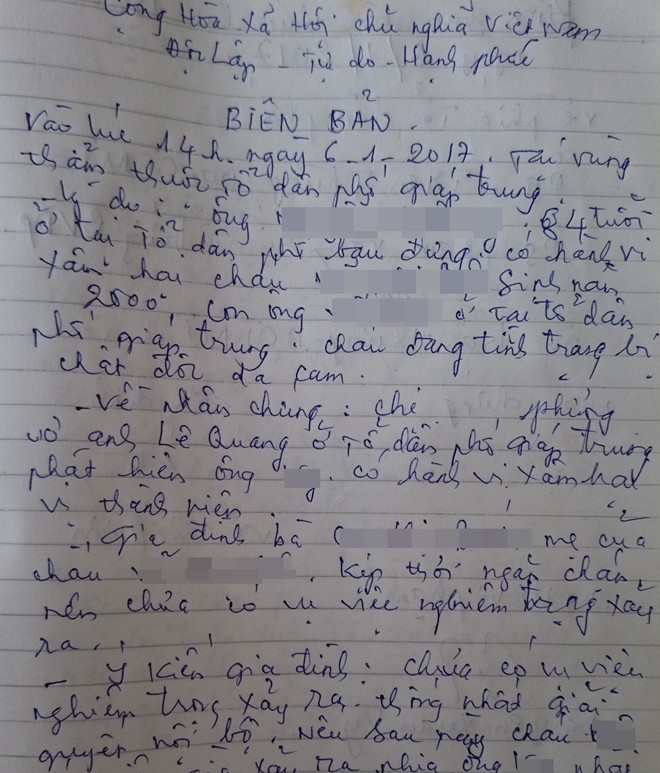 Cộng Hòa Xã Hội chủ nghĩa Việt Nam
Độc Lập - Tự do - Hạnh phúc
BIÊN BẢN.
Vào lúc 14h. ngày 6-1-2017. Tại vùng
thẩm thuộc tổ dân phố giáp trung.
- Lý do: ông 84 tuổi
ở tại Tổ dân phố Bàu đưng có hành vi
xâm hại cháu Sinh năm
2000, con ông ở tại tổ dân
phố giáp trung. cháu đang tình trạng bị
chất độc da cam.
- Về nhân chứng: chị phụng
vợ anh Lê Quang ở tổ dân phố giáp trung
phát hiện ông có hành vi xâm hại
vị thành niên.
- Gia đình bà mẹ của
cháu Kịp thời ngăn chặn
nên chưa có vụ việc nghiêm trọng xảy
ra.
- Ý kiến gia đình: chưa có vụ viêc
nghiêm trọng xảy ra. thống nhất giải
quyết nội bộ. Nếu sau này cháu
xảy ra phía ông phải